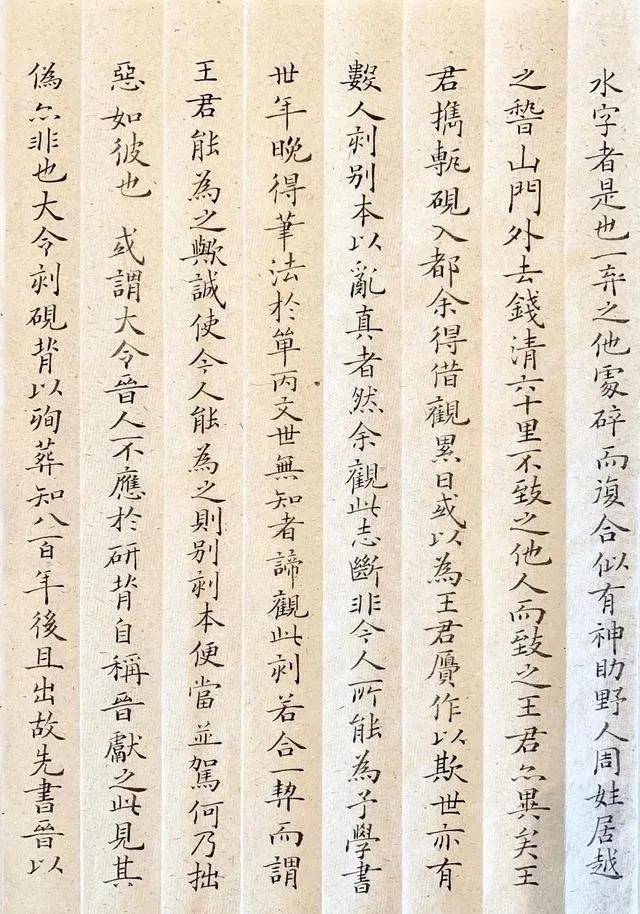 水字者是也一弃之他處碎而復合似有神助野人周姓居越
之稽山門外去錢清六十里不致之他人而致之王君亦異矣王
君攜甎硯入都余得借觀累日或以為王君贗作以欺世亦有
數人刻別本以亂真者然余觀此志斷非今人所能為予學書
卅年晚得筆法於單丙文世無知者諦觀此刻若合一契而謂
王君能為之歟誠使今人能為之則別刻本便當並駕何乃拙
惡如彼也 或謂大令晉人不應於研背自稱晉獻之此見其
偽亦非也大令刻硯背以殉葬知八百年後且出故先書晉以